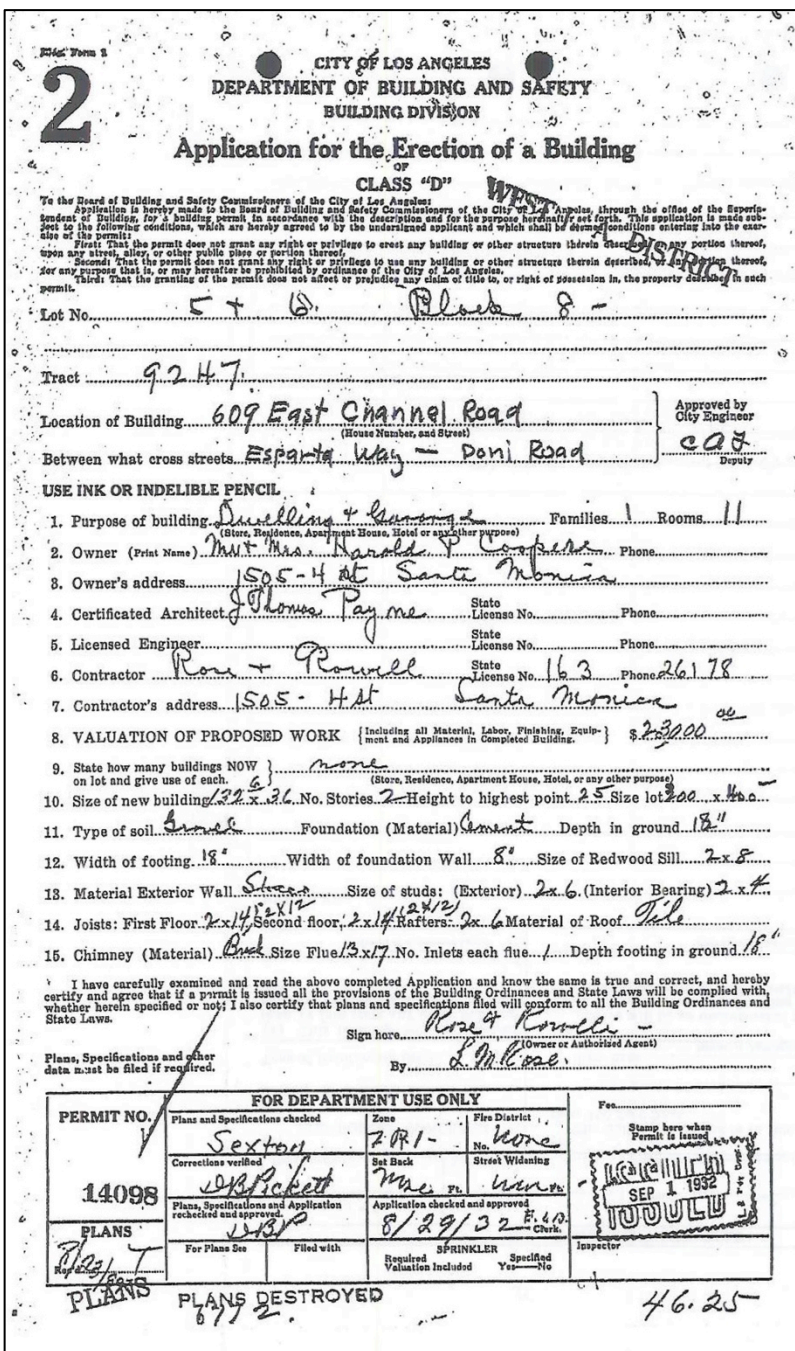 Bldg. Form 2
2
CITY OF LOS ANGELES
DEPARTMENT OF BUILDING AND SAFETY
BUILDING DIVISION
Application for the Erection of a Building
OF
CLASS "D"
WEST DISTRICT
To the Board of Building and Safety Commissioners of the City of Los Angeles:
Application is hereby made to the Board of Building and Safety Commissioners of the City of Los Angeles, through the office of the Superin-
tendent of Building, for a building permit in accordance with the description and for the purpose hereinafter set forth. This application is made sub-
ject to the following conditions, which are hereby agreed to by the undersigned applicant and which shall be deemed conditions entering into the exer-
cise of the permit:
First: That the permit does not grant any right or privilege to erect any building or other structure therein described, or any portion thereof,
upon any street, alley, or other public place or portion thereof.
Second: That the permit does not grant any right or privilege to use any building or other structure therein described, or any portion thereof,
for any purpose that is, or may hereafter be prohibited by ordinance of the City of Los Angeles.
Third: That the granting of the permit does not affect or prejudice any claim of title to, or right of possession in, the property described in such
permit.
Lot No. 5 + 6. Block 8 -
Tract 9247
Location of Building 609 East Channel Road
(House Number, and Street)
Approved by
City Engineer
Deputy
Between what cross streets Esparta Way - Doni Road
USE INK OR INDELIBLE PENCIL
1. Purpose of building Dwelling + Garange Families 1 Rooms 11
(Store, Residence, Apartment House, Hotel or any other purpose)
2. Owner (Print Name) Mr + Mrs. Harold P Coopere Phone
3. Owner's address 1505-4 St Santa Monica
4. Certificated Architect J Thomas Payne State License No. Phone
5. Licensed Engineer State License No. Phone
6. Contractor Rose + Rowell State License No. 163 Phone 26178
7. Contractor's address 1505 - 4 St Santa Monica
8. VALUATION OF PROPOSED WORK {Including all Material, Labor, Finishing, Equip- ment and Appliances in Completed Building.} $ 23000 00
9. State how many buildings NOW on lot and give use of each. } none
(Store, Residence, Apartment House, Hotel, or any other purpose)
10. Size of new building 132 6 x 36 No. Stories 2 Height to highest point 25 Size lot 200 x 400
11. Type of soil Gravel Foundation (Material) Cement Depth in ground 18"
12. Width of footing 18" Width of foundation Wall 8" Size of Redwood Sill 2 x 8
13. Material Exterior Wall Size of studs: (Exterior) 2 x 6 (Interior Bearing) 2 x 4
14. Joists: First Floor 2 x 14 (2x12) Second floor, 2 x 14 (2x12) Rafters: 2 x 6 Material of Roof Tile
15. Chimney (Material) Brick Size Flue 13 x 17 No. Inlets each flue 1 Depth footing in ground 18"
I have carefully examined and read the above completed Application and know the same is true and correct, and hereby
certify and agree that if a permit is issued all the provisions of the Building Ordinances and State Laws will be complied with,
whether herein specified or not; I also certify that plans and specifications filed will conform to all the Building Ordinances and
State Laws.
Sign here Rose & Rowell -
(Owner or Authorized Agent)
Plans, Specifications and other
data must be filed if required.
By L.M. Rose.
FOR DEPARTMENT USE ONLY
PERMIT NO.
14098
PLANS
Plans and Specifications checked
Sexton
Corrections verified
DBPickett
Plans, Specifications and Application
rechecked and approved.
DBP
For Plans See
Filed with
Zone
Fire District
No. None
Set Back
Ft.
Street Widening
Ft.
Application checked and approved
8/29/32
Clerk.
SPRINKLER
Required Specified
Valuation Included Yes—No
Fee
Stamp here when
Permit is issued
SEP 1 1932
Inspector
PLANS
PLANS DESTROYED
46.25